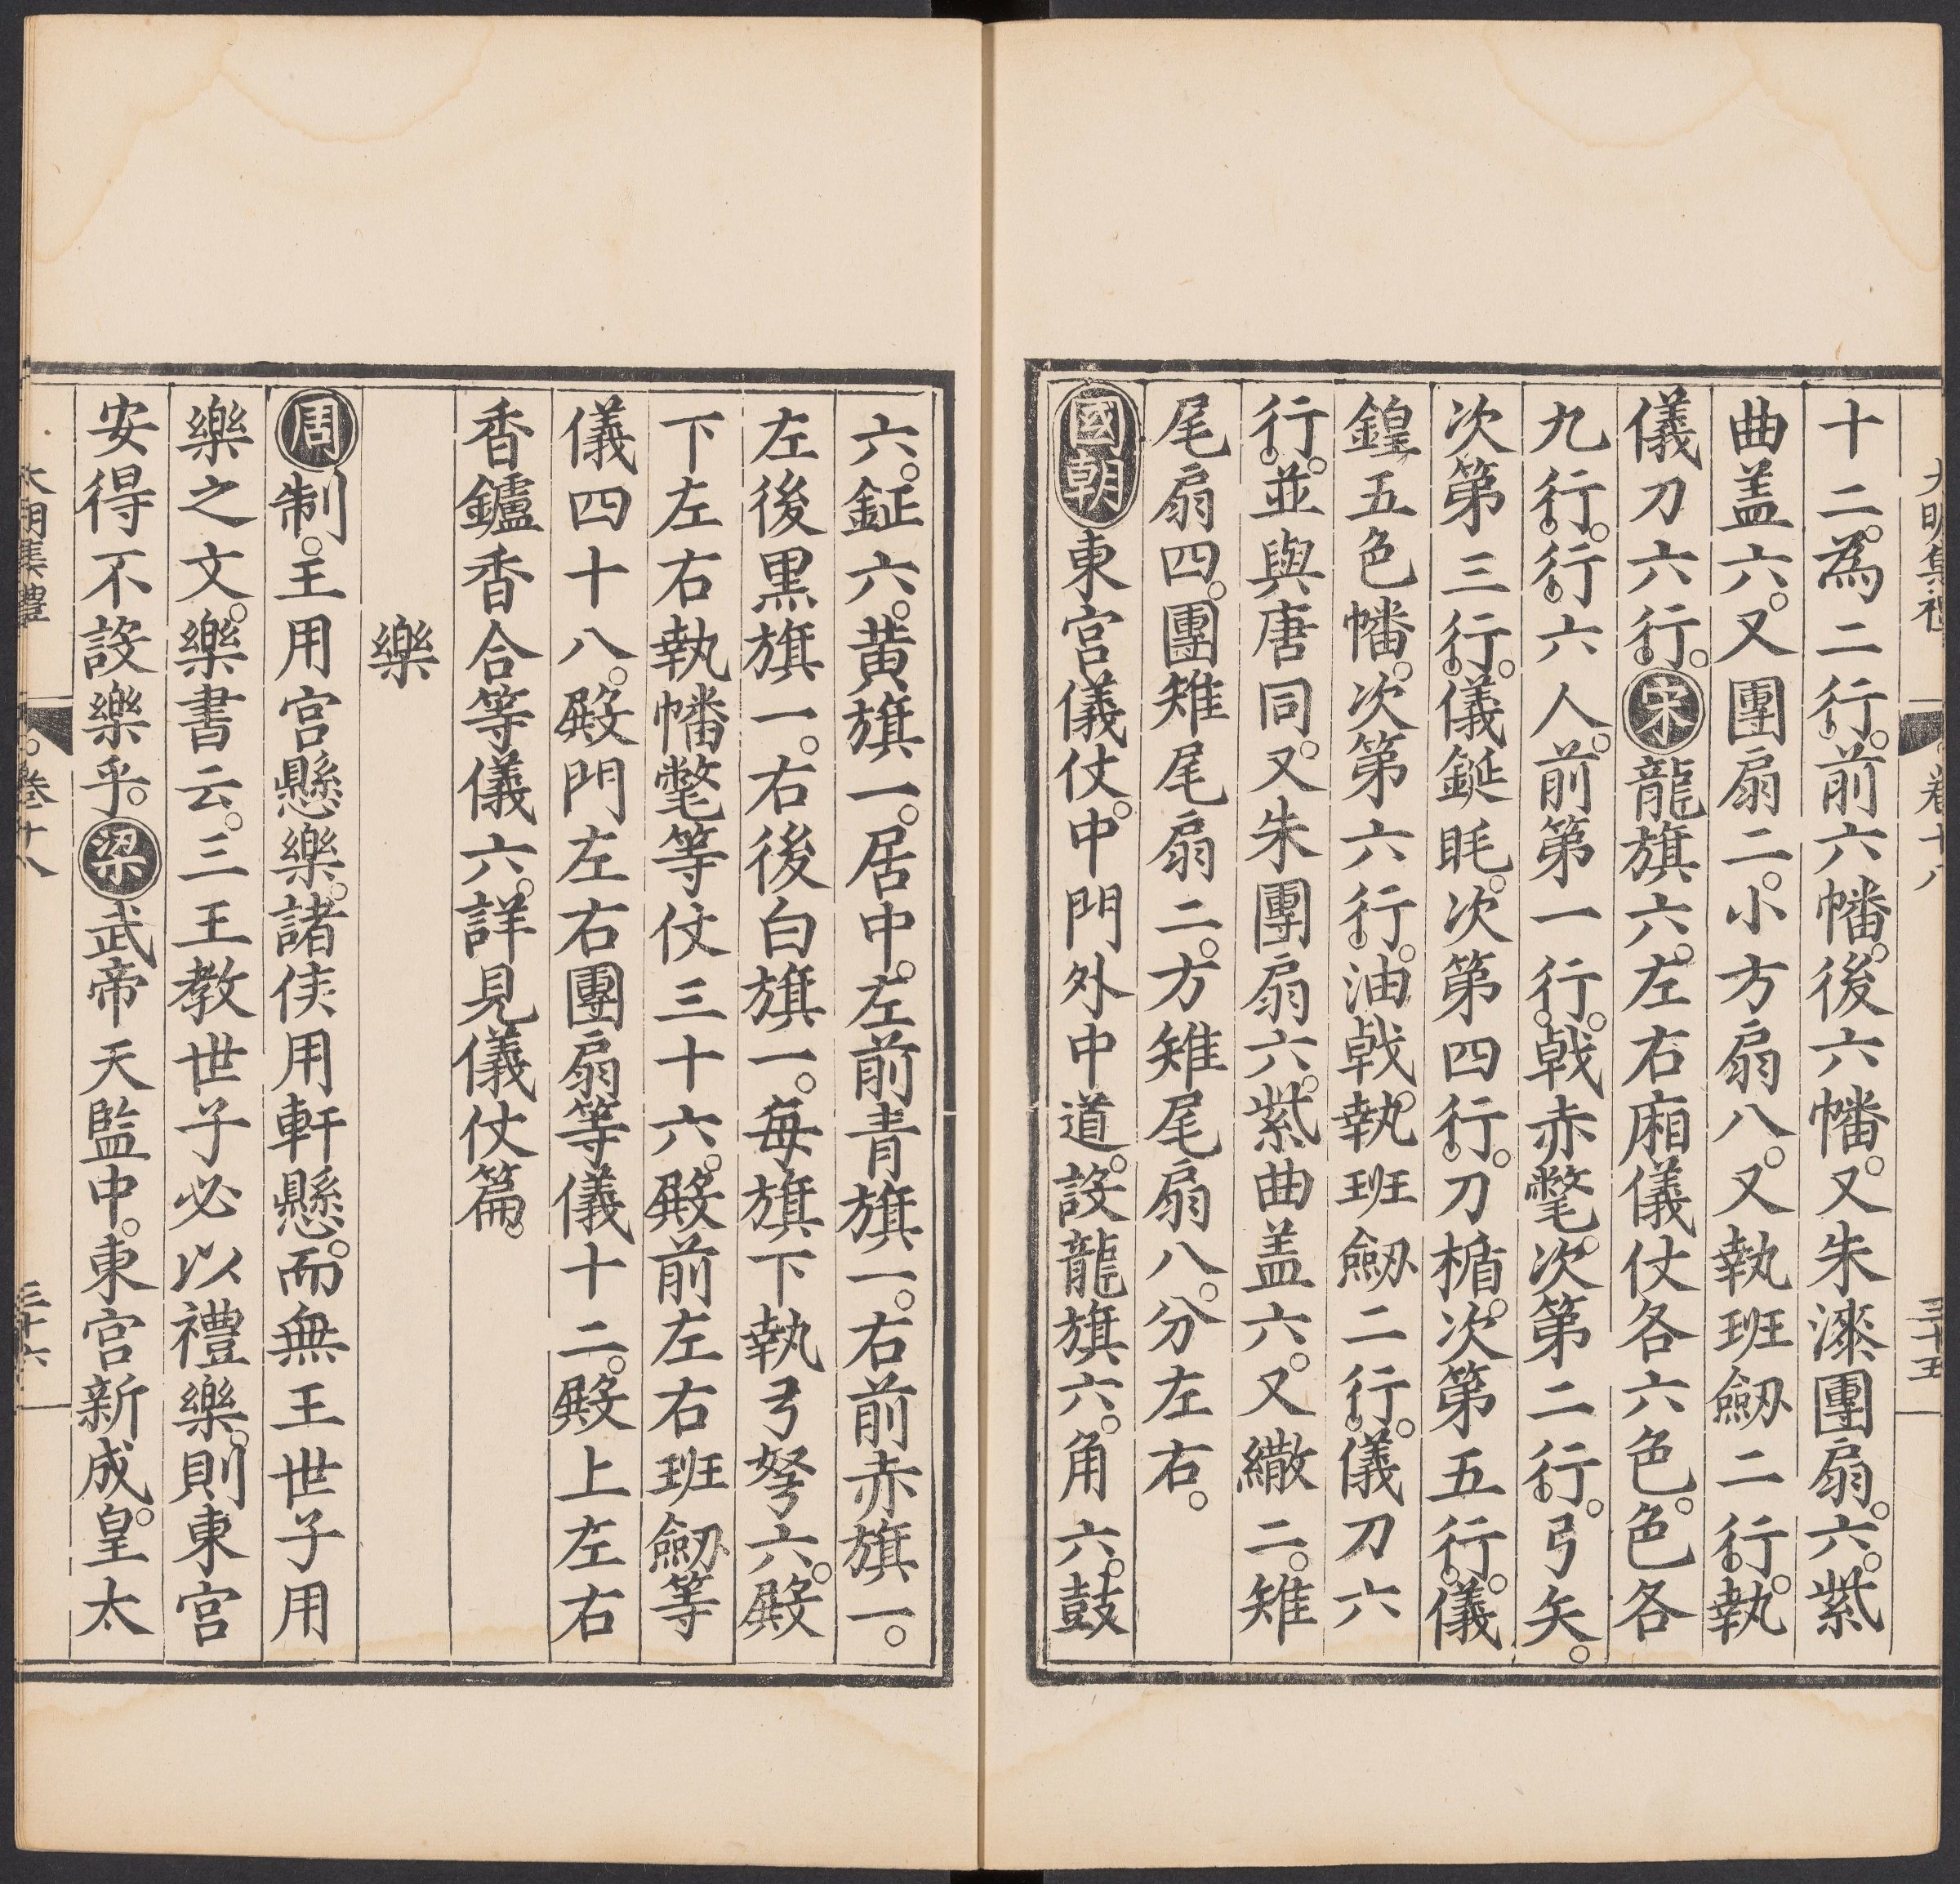 大明集禮 卷十八 三十五
十二。為二行。前六幡。後六幡。又朱漆團扇。六。紫
曲盖六。又團扇二。小方扇八。又執班劒二行。執
儀刀六行。宋龍旗六。左右廂儀仗各六色。色各
九行。行六人。前第一行。戟赤氅。次第二行。弓矢。
次第三行。儀鋋眊。次第四行。刀楯。次第五行。儀
鍠五色幡。次第六行。油戟。執班劒二行。儀刀六
行。並與唐同。又朱團扇六。紫曲盖六。又繖二。雉
尾扇四。團雉尾扇二。方雉尾扇八。分左右。
國朝東宮儀仗。中門外中道。設龍旗六。角六。鼓
六。鉦六。黃旗一。居中。左前青旗一。右前赤旗一。
左後黑旗一。右後白旗一。每旗下執弓弩六。殿
下左右執幡氅等仗三十六。殿前左右班劒等
儀四十八。殿門左右團扇等儀十二。殿上左右
香鑪香合等儀六。詳見儀仗篇。
樂
周制。王用宮懸樂。諸侯用軒懸。而無王世子用
樂之文。樂書云。三王教世子必以禮樂。則東宮
安得不設樂乎。梁武帝天監中。東宮新成。皇太
大明集禮 卷十八 三十六